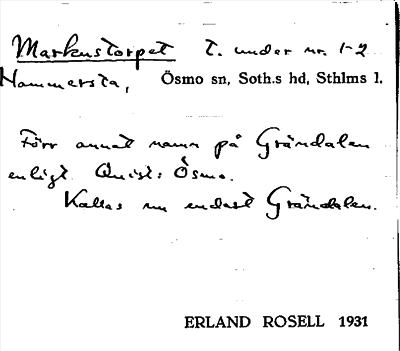 Markustorpet t. under nr. 1-2
Hammersta, Ösmo sn, Soth.s hd, Sthlms l.
Förr annat namn på Grändalen
enligt Quist: Ösmo.
Kallas nu endast Grändalen.
ERLAND ROSELL 1931